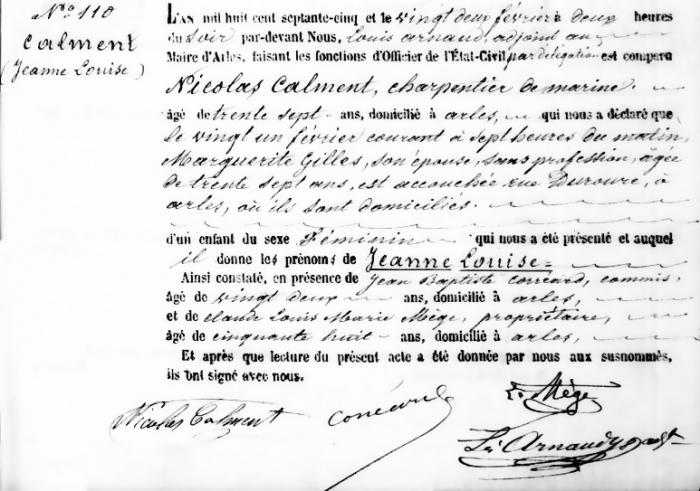 N.o 110
Calment
(Jeanne Louise)
L'AN mil huit cent septante-cinq et le vingt deux février à deux heures
du soir par-devant Nous, Louis arnaud, adjoint au
Maire d'Arles, faisant les fonctions d'Officier de l'État-Civil par délégation est comparu
Nicolas Calment, charpentier de marine,
âgé de trente sept ans, domicilié à arles, qui nous a déclaré que
le vingt un février courant à sept heures du matin,
Marguerite Gilles, son épouse, sans profession, âgée
de trente sept ans, est accouchée rue Duroure, à
arles, où ils sont domiciliés.
d'un enfant du sexe Féminin qui nous a été présenté et auquel
il donne les prénoms de Jeanne Louise=
Ainsi constaté, en présence de Jean Baptiste corréard, commis,
âgé de vingt deux ans, domicilié à arles,
et de claude Louis Marie Mège, propriétaire,
âgé de cinquante huit ans, domicilié à arles,
Et après que lecture du présent acte a été donnée par nous aux susnommés,
ils ont signé avec nous.
L. Mège
Nicolas Calment
Ls Arnaud